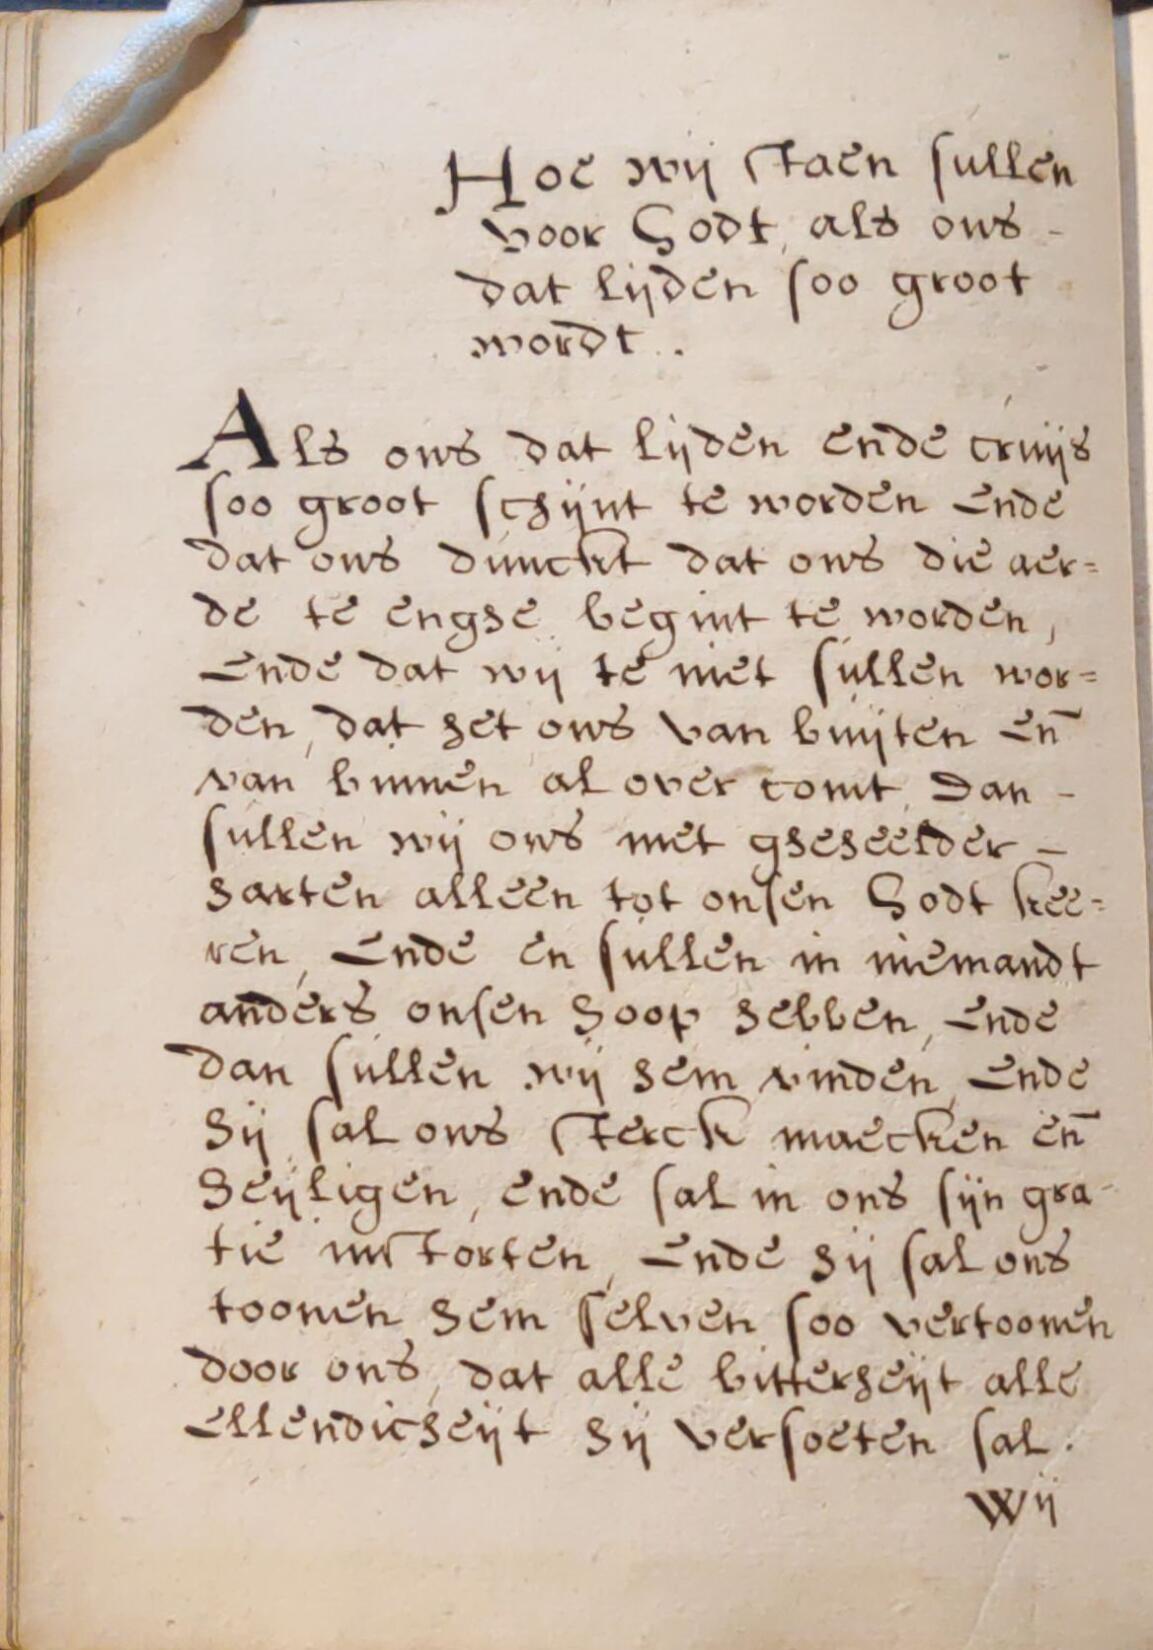 Hoe wij staen sullen
voor Godt, als ons -
dat lijden soo groot
wordt .
Als ons dat lijden ende cruijs
soo groot schijnt te worden Ende
dat ons dunckt dat ons die aer=
de te enghe begint te worden,
Ende dat wij te niet sullen wor=
den, dat het ons van buijten En̄
van binnen al over comt, Dan -
sullen wij ons met gheheelder -
harten alleen tot onsen Godt kee=
ren, Ende en sullen in niemandt
anders onsen hoop hebben, Ende
dan sullen wij hem vinden, Ende
hij sal ons sterck maecken en̄
heijligen, ende sal in ons sijn gra-
tie instorten, Ende hij sal ons
toonen hem selven soo vertoonen
door ons, dat alle bitterheijt alle
Ellendicheijt hij versoeten sal.
Wij